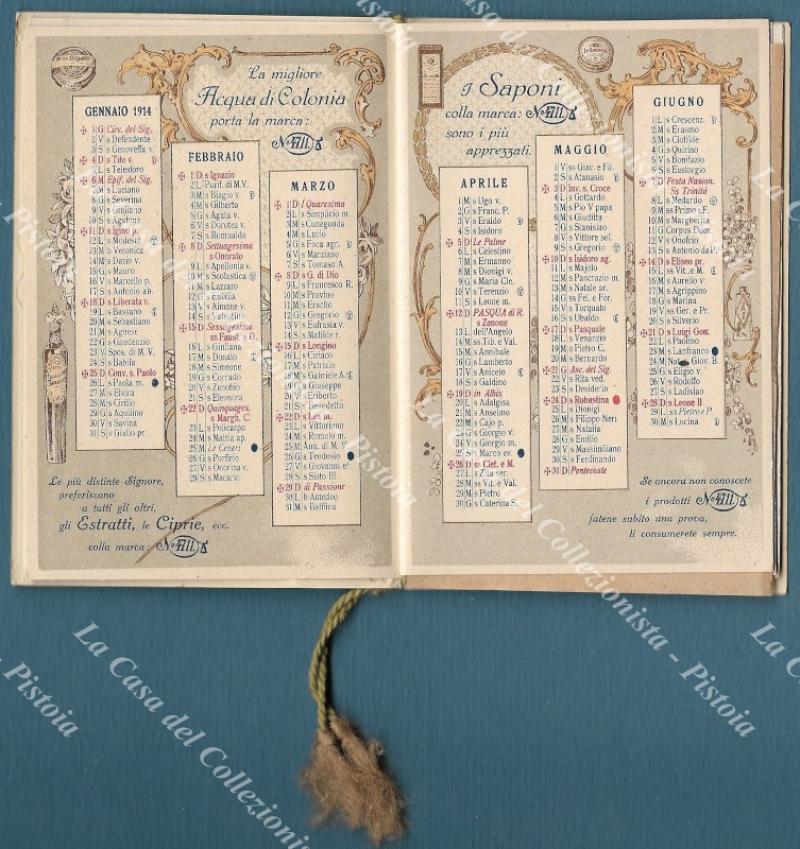 La migliore
Acqua di Colonia
porta la marca:
No 4711
GENNAIO 1914
1 G Circ. del Sig.
2 V s Defendente
3 S s Genoveffa v.
4 D s Tito v.
5 L s Telesforo
6 M Epif. del Sig.
7 M s Luciano
8 G s Severino
9 V s Giuliano
10 S s Agatone
11 D s Igino p.
12 L s Modesto
13 M b Veronica
14 M s Dazio v.
15 G s Mauro
16 V s Marcello p.
17 S s Antonio ab.
18 D s Liberata v.
19 L s Bassano
20 M s Sebastiano
21 M s Agnese
22 G s Gaudenzio
23 V Spos. di M. V.
24 S s Babila
25 D Conv. s. Paolo
26 L s Paola m.
27 M s Elvira
28 M s Cirillo
29 G s Aquilino
30 V s Savina
31 S s Giulio pr.
FEBBRAIO
1 D s Ignazio
2 L Purif. di M.V.
3 M s Biagio v.
4 M s Gilberto
5 G s Agata v.
6 V s Dorotea v.
7 S s Romualdo
8 D Settuagesima
s Onorato
9 L s Apollonia v.
10 M s Scolastica
11 M s Lazzaro
12 G s Eulalia
13 V s Aimone v.
14 S s Valentino
15 D Sessagesima
ss Faust. e G.
16 L s Giuliana
17 M s Donato
18 M s Simeone
19 G s Corrado
20 V s Zenobio
21 S s Eleonora
22 D Quinquages.
s Margh. C.
23 L s Policarpo
24 M s Mattia ap.
25 M Le Ceneri
26 G s Porfirio
27 V s Onorina v.
28 S s Macario
MARZO
1 D I Quaresima
2 L s Simplicio m.
3 M s Cunegonda
4 M s Lucio
5 G s Foca agr.
6 V s Marziano
7 S s Tomaso A.
8 D s G. di Dio
9 L s Francesca R.
10 M s Provino
11 M s Eraclio
12 G s Gregorio
13 V s Eufrasia v.
14 S s Matilde r.
15 D s Longino
16 L s Ciriaco
17 M s Patrizio
18 M s Gabriele A.
19 G s Giuseppe
20 V s Eriberto
21 S s Benedetto
22 D s Let. m.
23 L s Vittoriano
24 M s Romolo m.
25 M Ann. di M. V.
26 G s Teodosio
27 V s Giovanni er.
28 S s Sisto III
29 D di Passione
30 L b Amedeo
31 M s Balbina
Le più distinte Signore,
preferiscono
a tutti gli altri,
gli Estratti, le Ciprie, ecc.
colla marca: No 4711
I Saponi
colla marca: No 4711
sono i più
apprezzati.
APRILE
1 M s Ugo v.
2 G s Franc. P.
3 V s Eraldo
4 S s Isidoro
5 D Le Palme
6 L s Celestino
7 M s Ermanno
8 M s Dionigi v.
9 G s Maria Cle.
10 V s Terenzio
11 S s Leone m.
12 D PASQUA di R.
s Zenone
13 L dell'Angelo
14 M ss.Tib. e Val.
15 M s Annibale
16 G s Lamberto
17 V s Aniceto
18 S s Galdino
19 D in Albis
20 L s Adalgisa
21 M s Anselmo
22 M s Cajo p.
23 G s Giorgio v.
24 V s Giorgio m.
25 S s Marco ev.
26 D ss Clet. e M.
27 L s Zita ser.
28 M ss Vit. e Val.
29 M s Pietro
30 G s Caterina S.
MAGGIO
1 V ss Giac. e Fil.
2 S s Atanasio
3 D Inv. s. Croce
4 L s Gottardo
5 M s Pio V papa
6 M s Giuditta
7 G s Stanislao
8 V s Vittore sol.
9 S s Gregorio
10 D s Isidoro ag.
11 L s Majolo
12 M s Pancrazio m.
13 M s Natale ar.
14 G ss Fel. e For.
15 V s Torquato
16 S s Ubaldo
17 D s Pasquale
18 L s Venanzio
19 M s Pietro C.
20 M s Bernardo
21 G Asc. del Sig.
22 V s Rita ved.
23 S s Desiderio
24 D s Robustina
25 L s Dionigi
26 M s Filippo Neri
27 M s Natalia
28 G s Emilio
29 V s Massimiliano
30 S s Ferdinando
31 D Pentecoste
GIUGNO
1 L s Crescenz.
2 M s Erasmo
3 M s Clotilde
4 G s Quirino
5 V s Bonifazio
6 S s Eustorgio
7 D Festa Nasion.
Ss Trinità
8 L s Medardo
9 M ss Primo e F.
10 M s Margherita
11 G Corpus Dom.
12 V s Onofrio
13 S s Antonio da P.
14 D s Eliseo pr.
15 L ss Vit. e M.
16 M s Aurelio v.
17 M s Agrippino
18 G s Marina
19 V ss Ger. e Pr.
20 S s Silverio
21 D s Luigi Gon.
22 L s Paolino
23 M s Lanfranco
24 M Nata. Giov. B.
25 G s Eligio v.
26 V s Rodolfo
27 S s Ladislao
28 D s Leone II
29 L ss Pietro e P.
30 M s Lucina
Se ancora non conoscete
i prodotti No 4711
fatene subito una prova,
li consumerete sempre.
La Casa del Collezionista - Pistoia